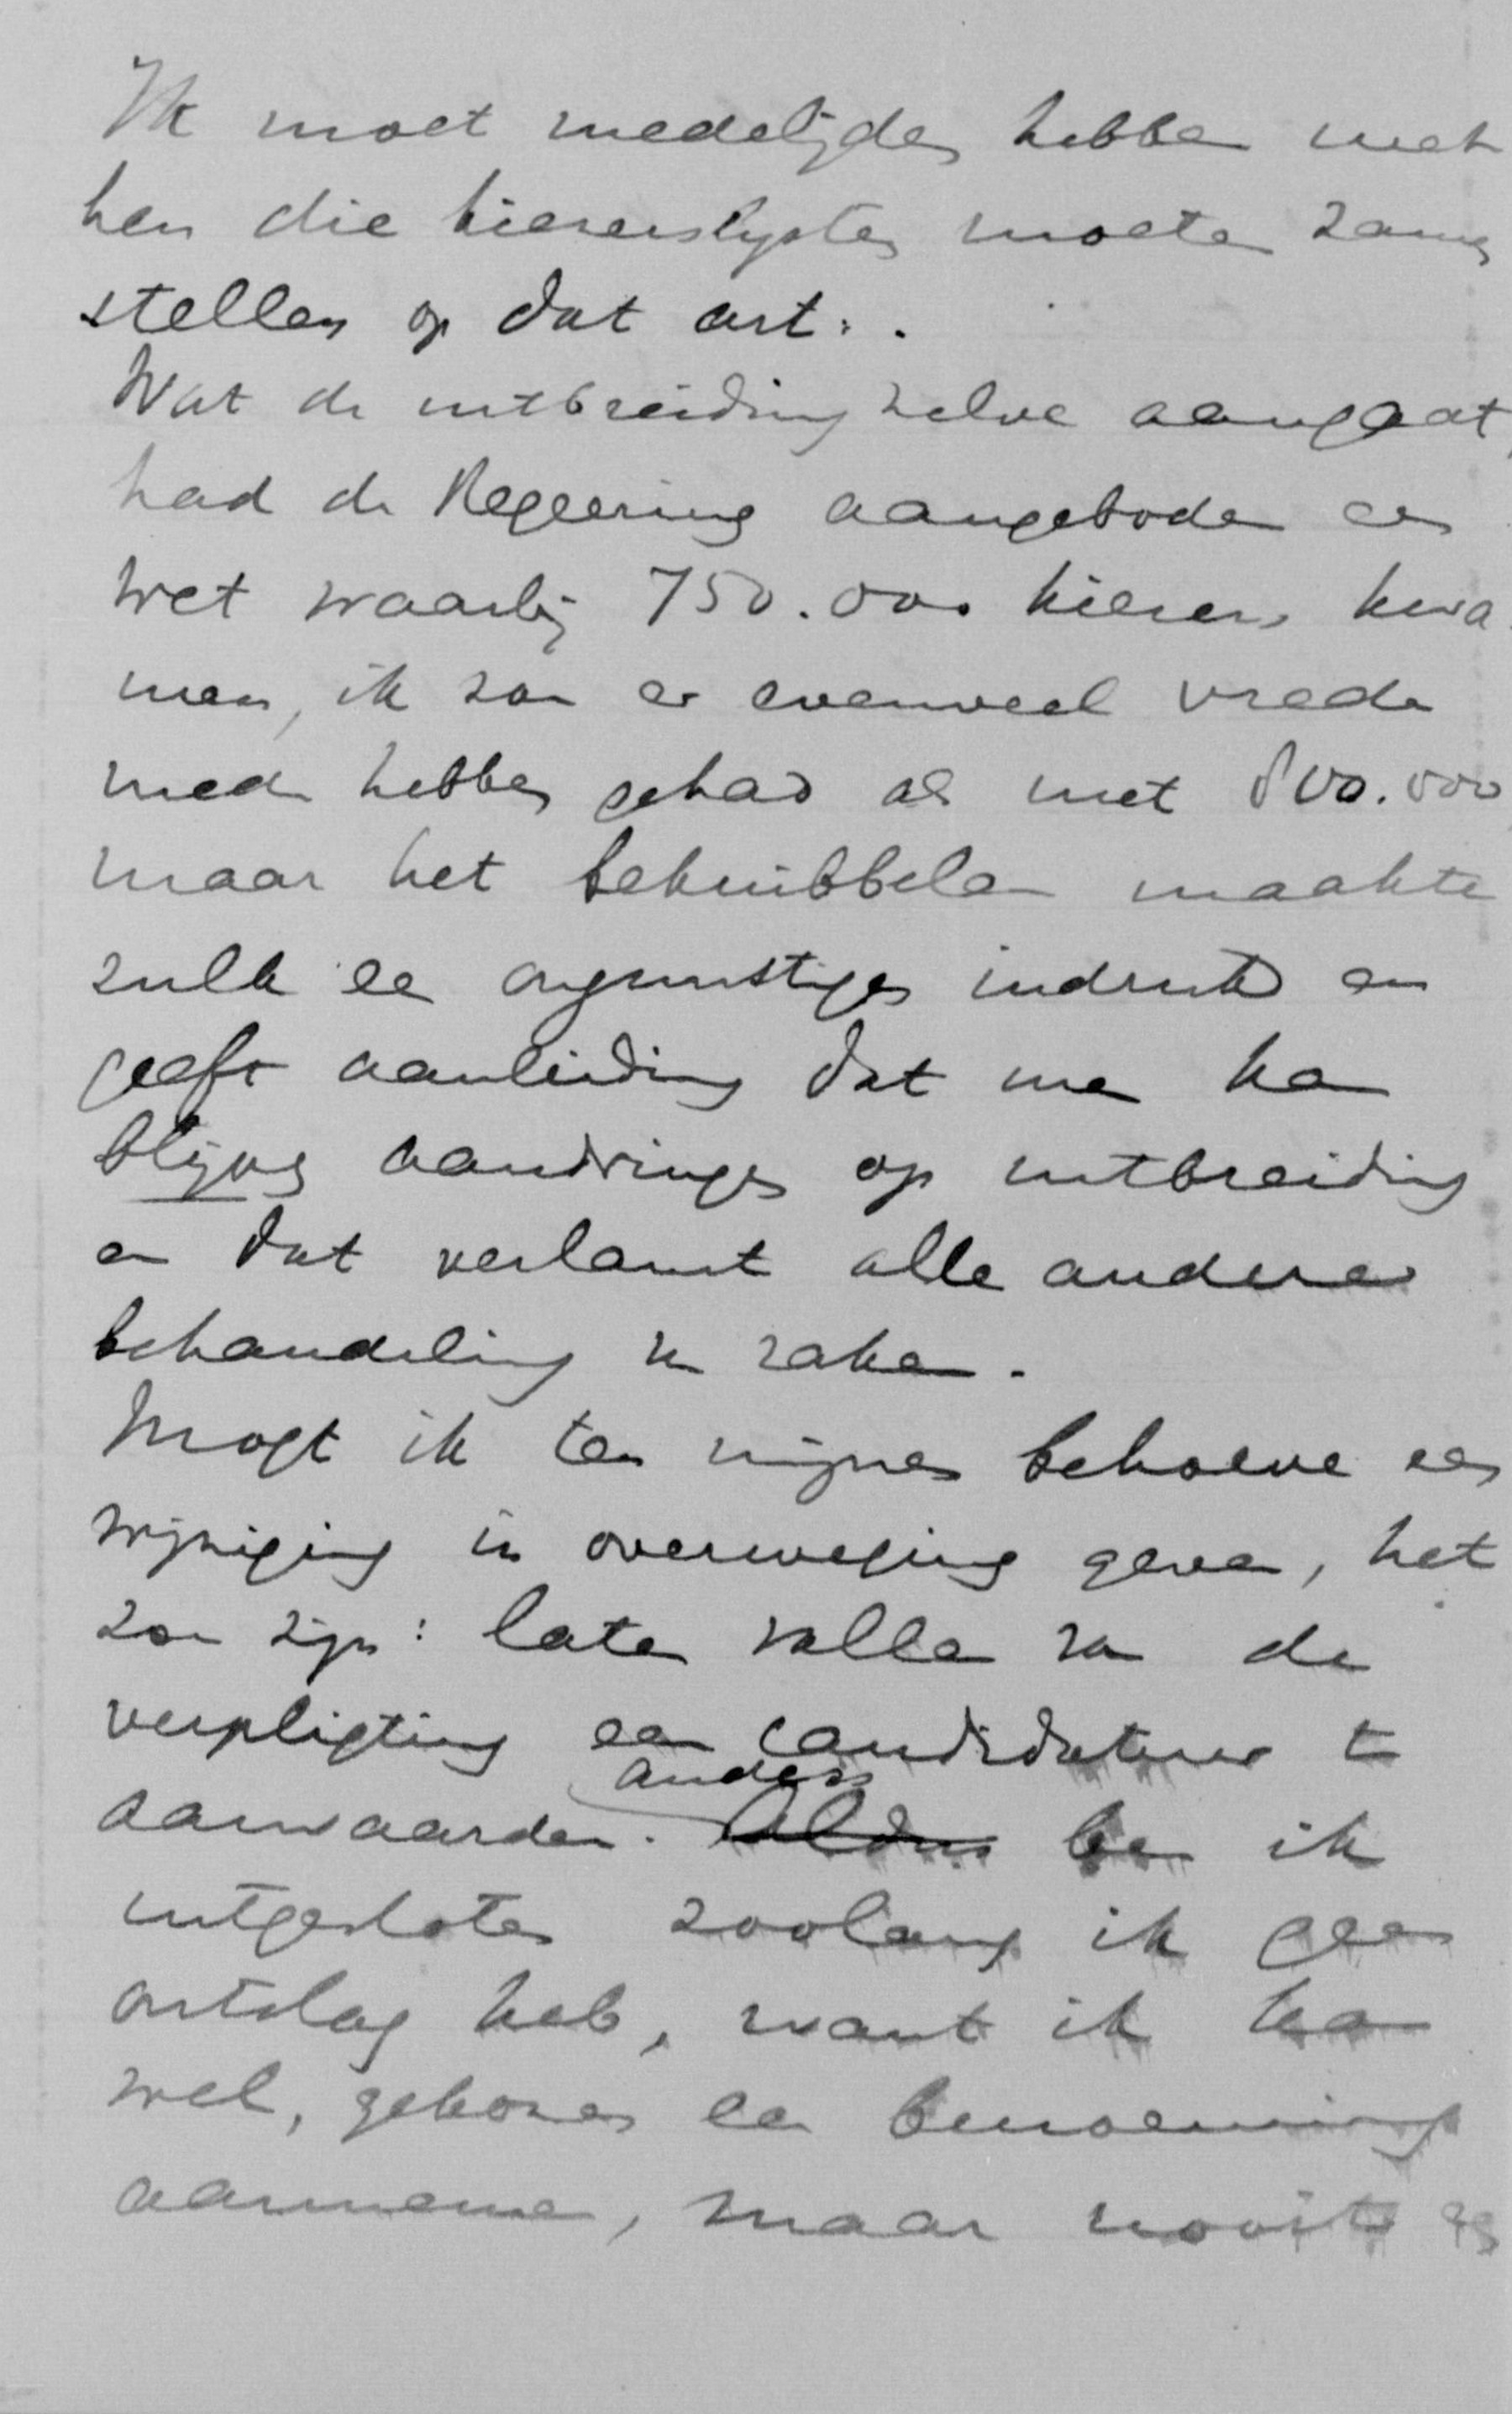 Ik moet medelijden hebben met
hen die kiezerslijsten moeten zamen
stellen op dat art..
Wat de uitbreiding zelve aangaat,
had de Regeering aangeboden een
wet waarbij 750.000 kiezers kwa
men, ik zou er evenveel vrede
mede hebben gehad als met 800.000
maar het beknibbelen maakte
zulk een ongunstigen indruk en
geeft aanleiding dat men kan
blijven aandringen op uitbreiding
en dat verlamt alle andere
behandeling van zaken.
Mogt ik ten mijnen behoeve een
wijziging in overweging geven, het
zou zijn: laten vallen van de
verpligting een candidatuur te
aanvaarden. Anders ~~Aldus~~ ben ik
uitgesloten zoolang ik geen
ontslag heb, want ik kan
wel, gekozen een benoeming
aannemen, maar nooit